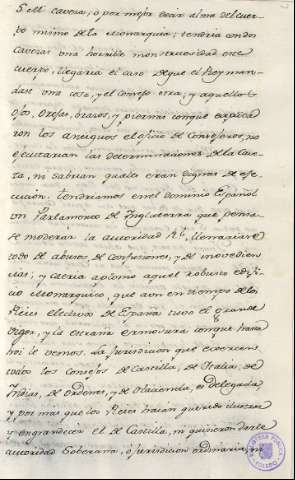 S.M. cavesa, ó por mejor decir alma del cuer-
po mismo de la Monarquia; tendria con dos
cavezas una horrible monstruosidad este
cuerpo, llegaria el caso de que el Rey man-
dase una cosa, y el Consejo otra; y aquellos
ojos, orejas, brazos, y piernas con que explica-
ron los antiguos el oficio de Consejeros, no
executarian las determinaciones de la Cave-
za, ni sabrian quales eran dignas de ese-
cucion. tendriamos en el dominio Español
un Parlamento de Inglaterra que pensa-
se moderar la autoridad Rl., llenariase
todo de abusos, de confusiones, y de inovedien-
cias; y caeria aplomo aquel robusto edifi-
cio Monarquico, que aun en tiempo de los
Reies electivos de España tuvo el grande
vigor, y la extraña ermosura con que hasta
hoi le vemos. La jurisdicion que exercen
todos los Consejos de Castilla, de Italia, de
Indias, de Ordenes, y de Hacienda, es delegada,
y por mas que los Reies haian querido ilustrar
y engrandecer el de Castilla, ni quisieron darle
autoridad Soberana, ó jurisdicion ordinaria, ni